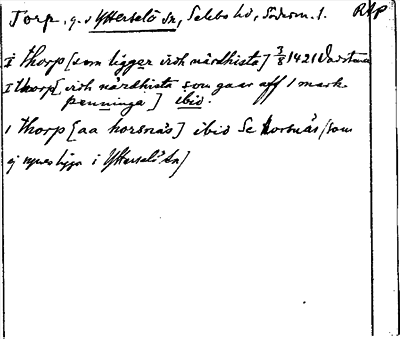 Torp, g. i Ytterselö sn, Selebo hd, Söderm. l. RAP
i thorp [som ligger vidh nårdhista] 3/8 1421 Vadstena
i thorp [vidh nårdhista som gaar aff 1 mark
penninga] ibid.
i thorp [aa horsnäs] ibid Se Horsnäs (som
ej synes ligga i Ytterselö sn]